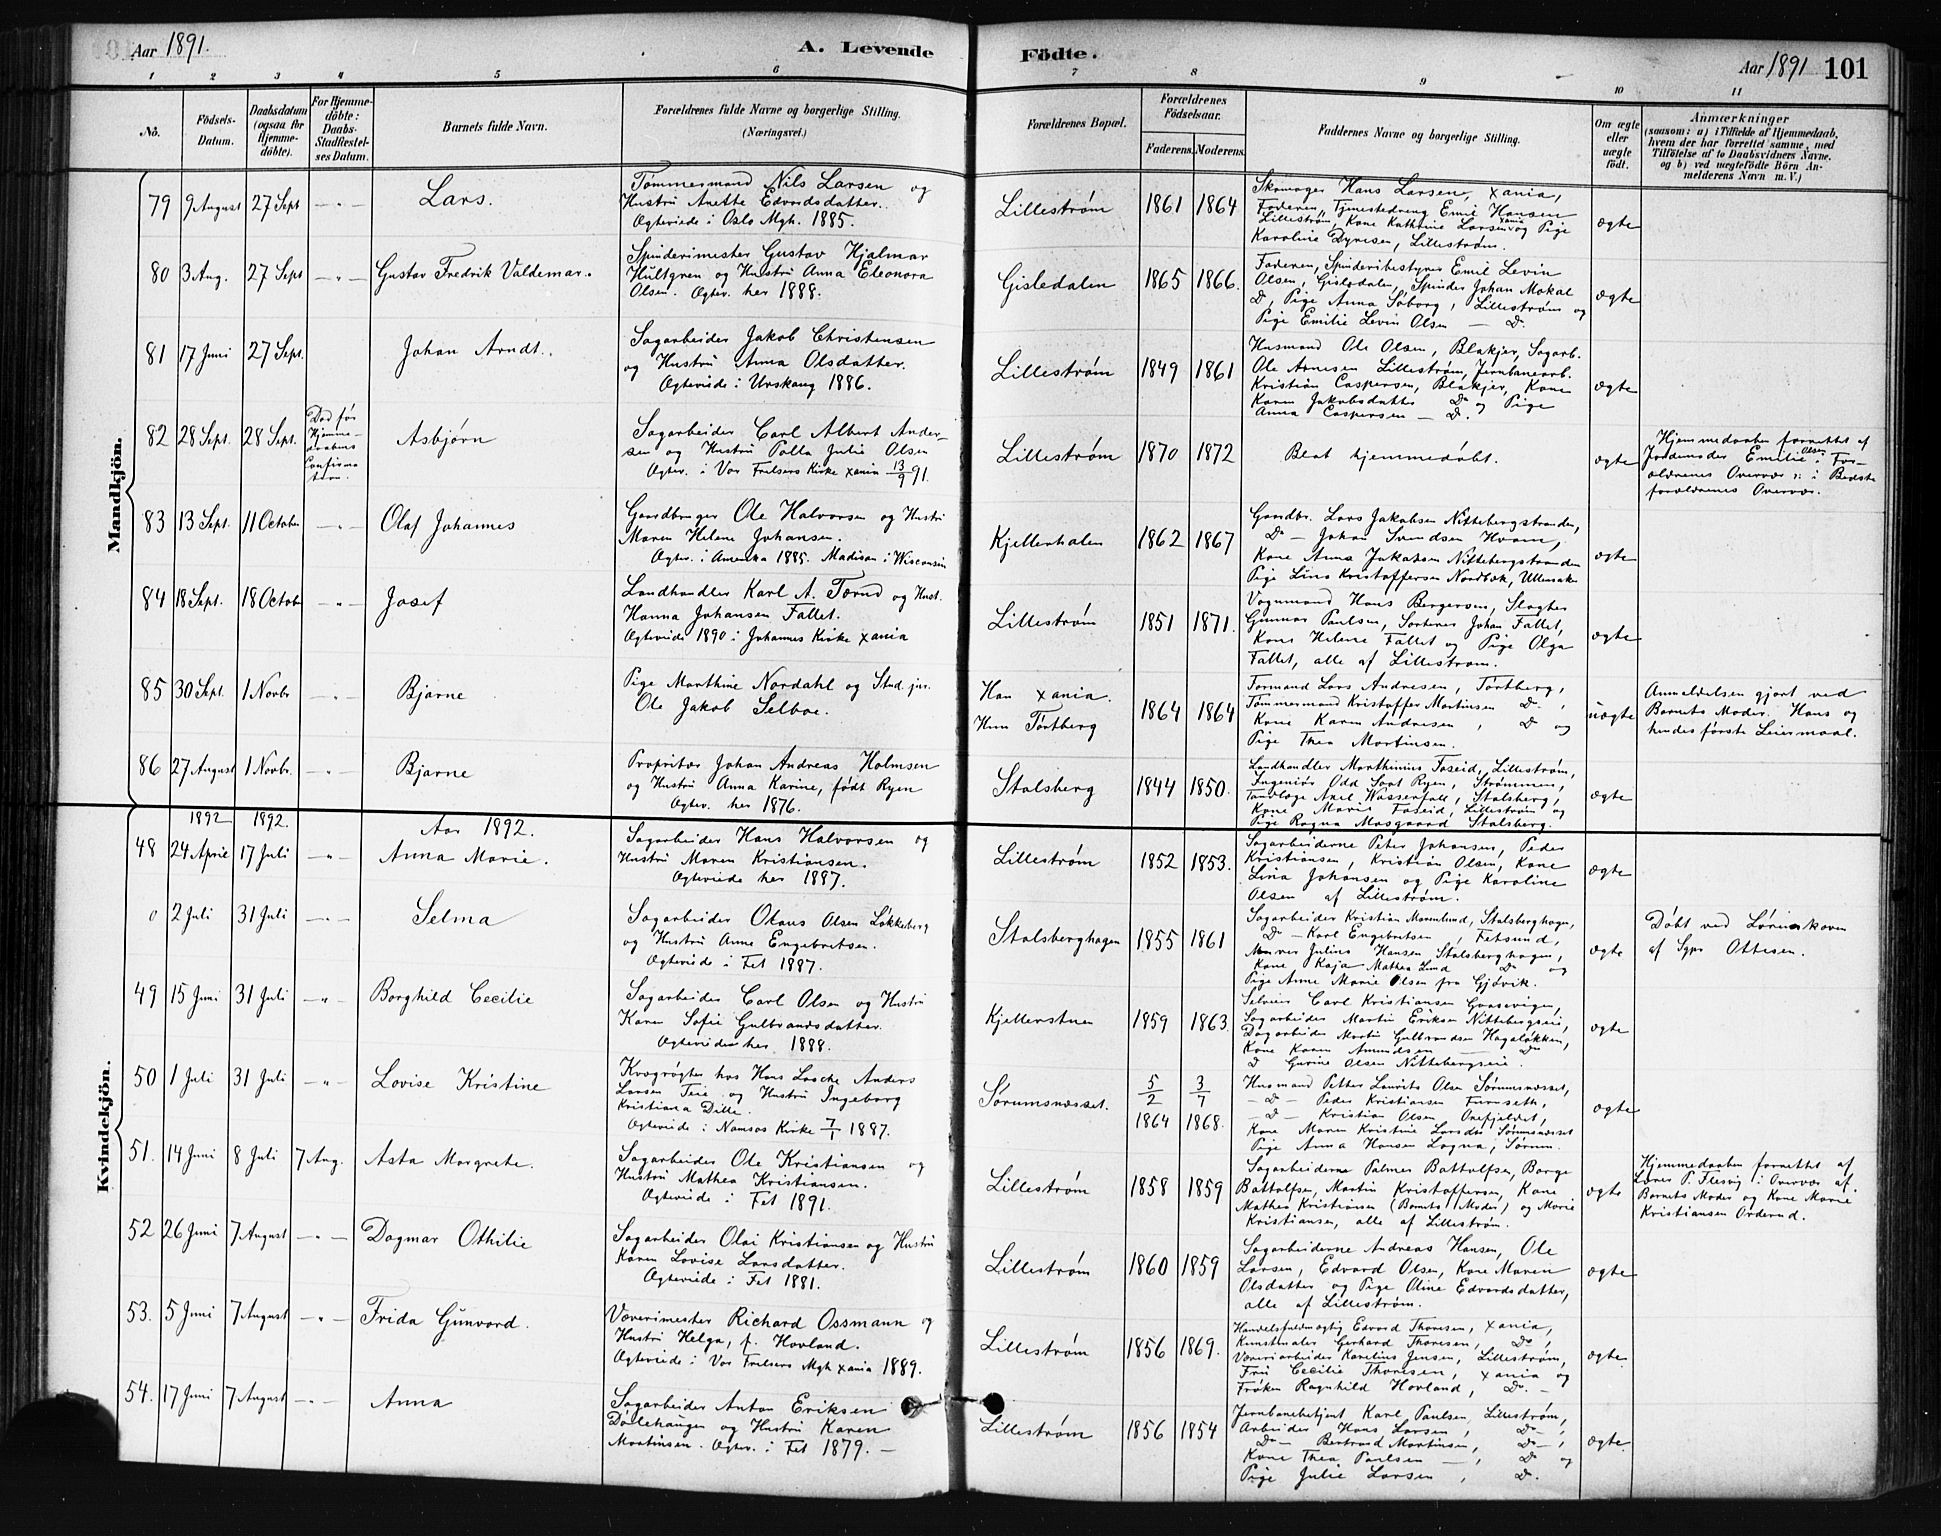 Aar 1891.
A. Levende
1 2 3 4 5 6
No.
Födsels-
Datum.
Daabsdatum
(ogsaa for
Hjemme-
döbte).
For Hjemme-
döbte:
Daabs-
Stadfæstel-
ses Datum.
Barnets fulde Navn.
Forældrenes fulde Navne og borgerlige Stilling.
(Næringsvei.)
Mandkjön.
79 9 August 27 Sept — " — Lars.
Tømmermand Nils Larsen og
Hustru Anette Edvardsdatter.
Ægteviede i Oslo Mgh. 1885.
80 3 Aug. 27 Sept — " — Gustav Fredrik Valdemar.
Spinderimester Gustav Hjalmar
Hultgren og Hustru Anna Eleonora
Olsen. Ægtev. her 1888.
81 17 Juni 27 Sept. Johan Arndt.
Sagarbeider Jakob Christensen
og Hustru Anna Olsdatter.
Ægteviede i Urskoug 1886.
82 28 Sept. 28 Sept.
Død før
Hjemme-
daabens
Confirma
tion.
Asbjørn
Sagarbeider Carl Albert Ander-
sen og Hustru Palla Julie Olsen
Ægtev. i Vor Frelsers Kirke Xania 13/9 91.
83 13 Sept. 11 October — " — Olaf Johannes
Gaardbruger Ole Halvorsen og Hustru
Maren Helene Johansen.
Ægtev. i Amerika 1885. Madison i Wisconsin
84 18 Sept. 18 October — " — Josef
Landhandler Karl A. Tørud og Hust.
Hanna Johansen Fallet.
Ægteviede 1890 i Johannes Kirke Xania
85 30 Sept. 1 Novbr — " — Bjarne
Pige Marthine Nordahl og Stud. jur.
Ole Jakob Selboe.
86 27 August 1 Novbr. — " — Bjarne
Proprietær Johan Andreas Holmsen
og Hustru Anna Karine, født Ryen
Ægtev. her 1876.
Kvindekjön.
1892 1892. Aar 1892.
48 24 April 17 Juli — " — Anna Marie.
Sagarbeider Hans Halvorsen og
Hustru Maren Kristiansen.
Ægteviede her 1887.
0 2 Juli 31 Juli — " — Selma
Sagarbeider Olaus Olsen Løkkeberg
og Hustru Anne Engebretsen.
Ægteviede i Fet 1887.
49 15 Juni 31 Juli — " — Borghild Cecilie
Sagarbeider Carl Olsen og Hustru
Karen Sofie Gulbrandsdatter.
Ægteviede her 1888.
50 1 Juli 31 Juli — " — Lovise Kristine
Kvægrøgter hos Hans Lasche Anders
Larsen Teie og Hustru Ingeborg
Kristiana Dille.
Ægteviede i Namsos Kirke 7/1 1887.
51. 14 Juni 8 Juli 7 Aug. Asta Margrete.
Sagarbeider Ole Kristiansen og
Hustru Mathea Kristiansen.
Ægteviede i Fet 1891.
52 26 Juni 7 August — " — Dagmar Othilie
Sagarbeider Olai Kristiansen og Hustru
Karen Lovise Larsdatter.
Ægteviede i Fet 1881.
53. 5 Juni 7 August — " — Frida Gunvord.
Væverimester Richard Ossmann og
Hustru Helga, f. Hovland.
Ægteviede i Vor Frelsers Mgh Xania 1889.
54. 17 Juni 7 August — " — Anna
Sagarbeider Anton Eriksen
Dølehaugen og Hustru Karen
Martinsen. Ægtev. i Fet 1879. —
Födte.
Aar 1891 101
7 8 9 10 11
Forældrenes Bopæl.
Forældrenes
Födselsaar.
Faderens. Moderens.
Faddernes Navne og borgerlige Stilling.
Om ægte
eller
uægte
födt.
Anmærkninger
(saasom: a) i Tilfælde af Hjemmedaab,
hvem der har forrettet samme, med
Tilföielse af to Daabsvidners Navne.
og b) ved uægtefödte Börn An-
melderens Navn m. V.)
Lillestrøm 1861 1864
Skomager Hans Larsen, Xania,
Faderen, Tjenestedreng Emil Hansen
Lillestrøm, Kone Kathrine Larsen Xania og Pige
Karoline Dyresen, Lillestrøm.
ægte
Gisledalen 1865 1866.
Faderen, Spinderibestyrer Emil Levin
Olsen, Gisledalen, Spinder Johan Mokal
Do, Pige Anna Søborg, Lillestrøm og
Pige Emilie Levin Olsen — Do.
ægte
Lillestrøm 1849 1861
Husmand Ole Olsen, Blakjer, Sagarb.
Ole Arnesen Lillestrøm, Jernbanearb.
Kristian Caspersen, Blakjer, Kone
Karen Jakobsdatter Do og Pige
Anna Caspersen — Do.
ægte
Lillestrøm 1870 1872 Blot hjemmedøbt. ægte
Hjemmedaaben forrettet af
Jordemoder Emilie Olsen i For-
ældrenes Overvær o: i Bedste
forældrenes Overvær.
Kjellerhalen 1862 1867
Gaardbr. Lars Jakobsen Nittebergstranden,
Do — Johan Svendsen Hvam,
Kone Anna Jakobsen Nittebergstranden
Pige Lina Kristoffersen Nordbæk, Ullensaker
ægte
Lillestrøm 1851 1871.
Vognmand Hans Bergersen, Slagter
Gunnar Paulsen, Sorterer Johan Fallet,
Kone Helene Fallet og Pige Olga
Fallet, alle af Lillestrøm.
ægte
Han Xania.
Hun Tørtberg
1864 1864
Formand Lars Andresen, Tørtberg,
Tømmermand Kristoffer Martinsen Do,
Kone Karen Andresen, Do og
Pige Thea Martinsen.
uægte
Anmeldelsen gjort ved
Barnets Moder. Hans og
hendes første Leiermaal.
Stalsberg 1844 1850.
Landhandler Marthinius Foseid, Lillestrøm,
Ingeniør Odd Soot Ryen, Strømmen,
Tandlæge Axel Wassenfall, Stalsberg,
Kone Marie Foseid, Lillestrøm og
Pige Ragna Mosgaard Stalsberg.
ægte
Lillestrøm 1852 1853.
Sagarbeiderne Peter Johansen, Peder
Kristiansen, Kristian Olsen, Kone
Lina Johansen og Pige Karoline
Olsen af Lillestrøm.
ægte
Stalsberghagen 1855 1861
Sagarbeider Kristian Marenlund, Stalsberghagen,
Do — Karl Engebretsen, Fetsund,
Murer Julius Hansen Stalsberghagen,
Kone Kaja Mathea Lund Do og
Pige Anne Marie Olsen fra Gjøvik.
ægte
Døbt ved Lørenskoven
af Sgpr Ottesen.
Kjellerstuen 1859 1863.
Selveier Carl Kristiansen Gaasevigen,
Sagarbeider Martin Eriksen Nittebergseie,
Dagarbeider Martin Gulbrandsen Hagaløkken,
Kone Karen Amundsen — Do
Do Gurine Olsen Nittebergseie.
ægte
Sørumsnæsset. 5/2 1864 3/7 1868.
Husmand Petter Laurits Olsen Sørumsnæsset,
— Do — Peder Kristiansen Furuseth,
— Do — Kristian Olsen, Ønefjeldet,
Kone Maren Kristine Larsdr Sørumsnæsset
Pige Anna Hansen Logna, Sørum.
ægte
Lillestrøm 1858 1859
Sagarbeiderne Palmer Battolfsen, Borge
Battolfsen, Martin Kristoffersen, Kone
Mathea Kristiansen (Barnets Moder) og Marie
Kristiansen, alle af Lillestrøm.
ægte
Hjemmedaaben forrettet af
Lærer P. Flesvig i Overvær af
Barnets Moder og Kone Marie
Kristiansen Orderud.
Lillestrøm 1860 1859
Sagarbeiderne Andreas Hansen, Ole
Larsen, Edvard Olsen, Kone Maren
Olsdatter og Pige Oline Edvardsdatter,
alle af Lillestrøm.
ægte
Lillestrøm 1856 1869.
Handelsfuldmægtig Edvard Thoresen, Xania,
Kunstmaler Gerhard Thoresen, Do,
Væveriarbeider Karelius Jensen, Lillestrøm,
Fru Cecilie Thoresen, Xania og
Frøken Ragnhild Hovland, Do. —
ægte
Lillestrøm 1856 1854
Jernbanebetjent Karl Paulsen, Lillestrøm,
Arbeider Hans Larsen, Do —,
Do — Bertrand Martinsen, Do —,
Kone Thea Paulsen —, Do og
Pige Julie Larsen, Do.
ægte